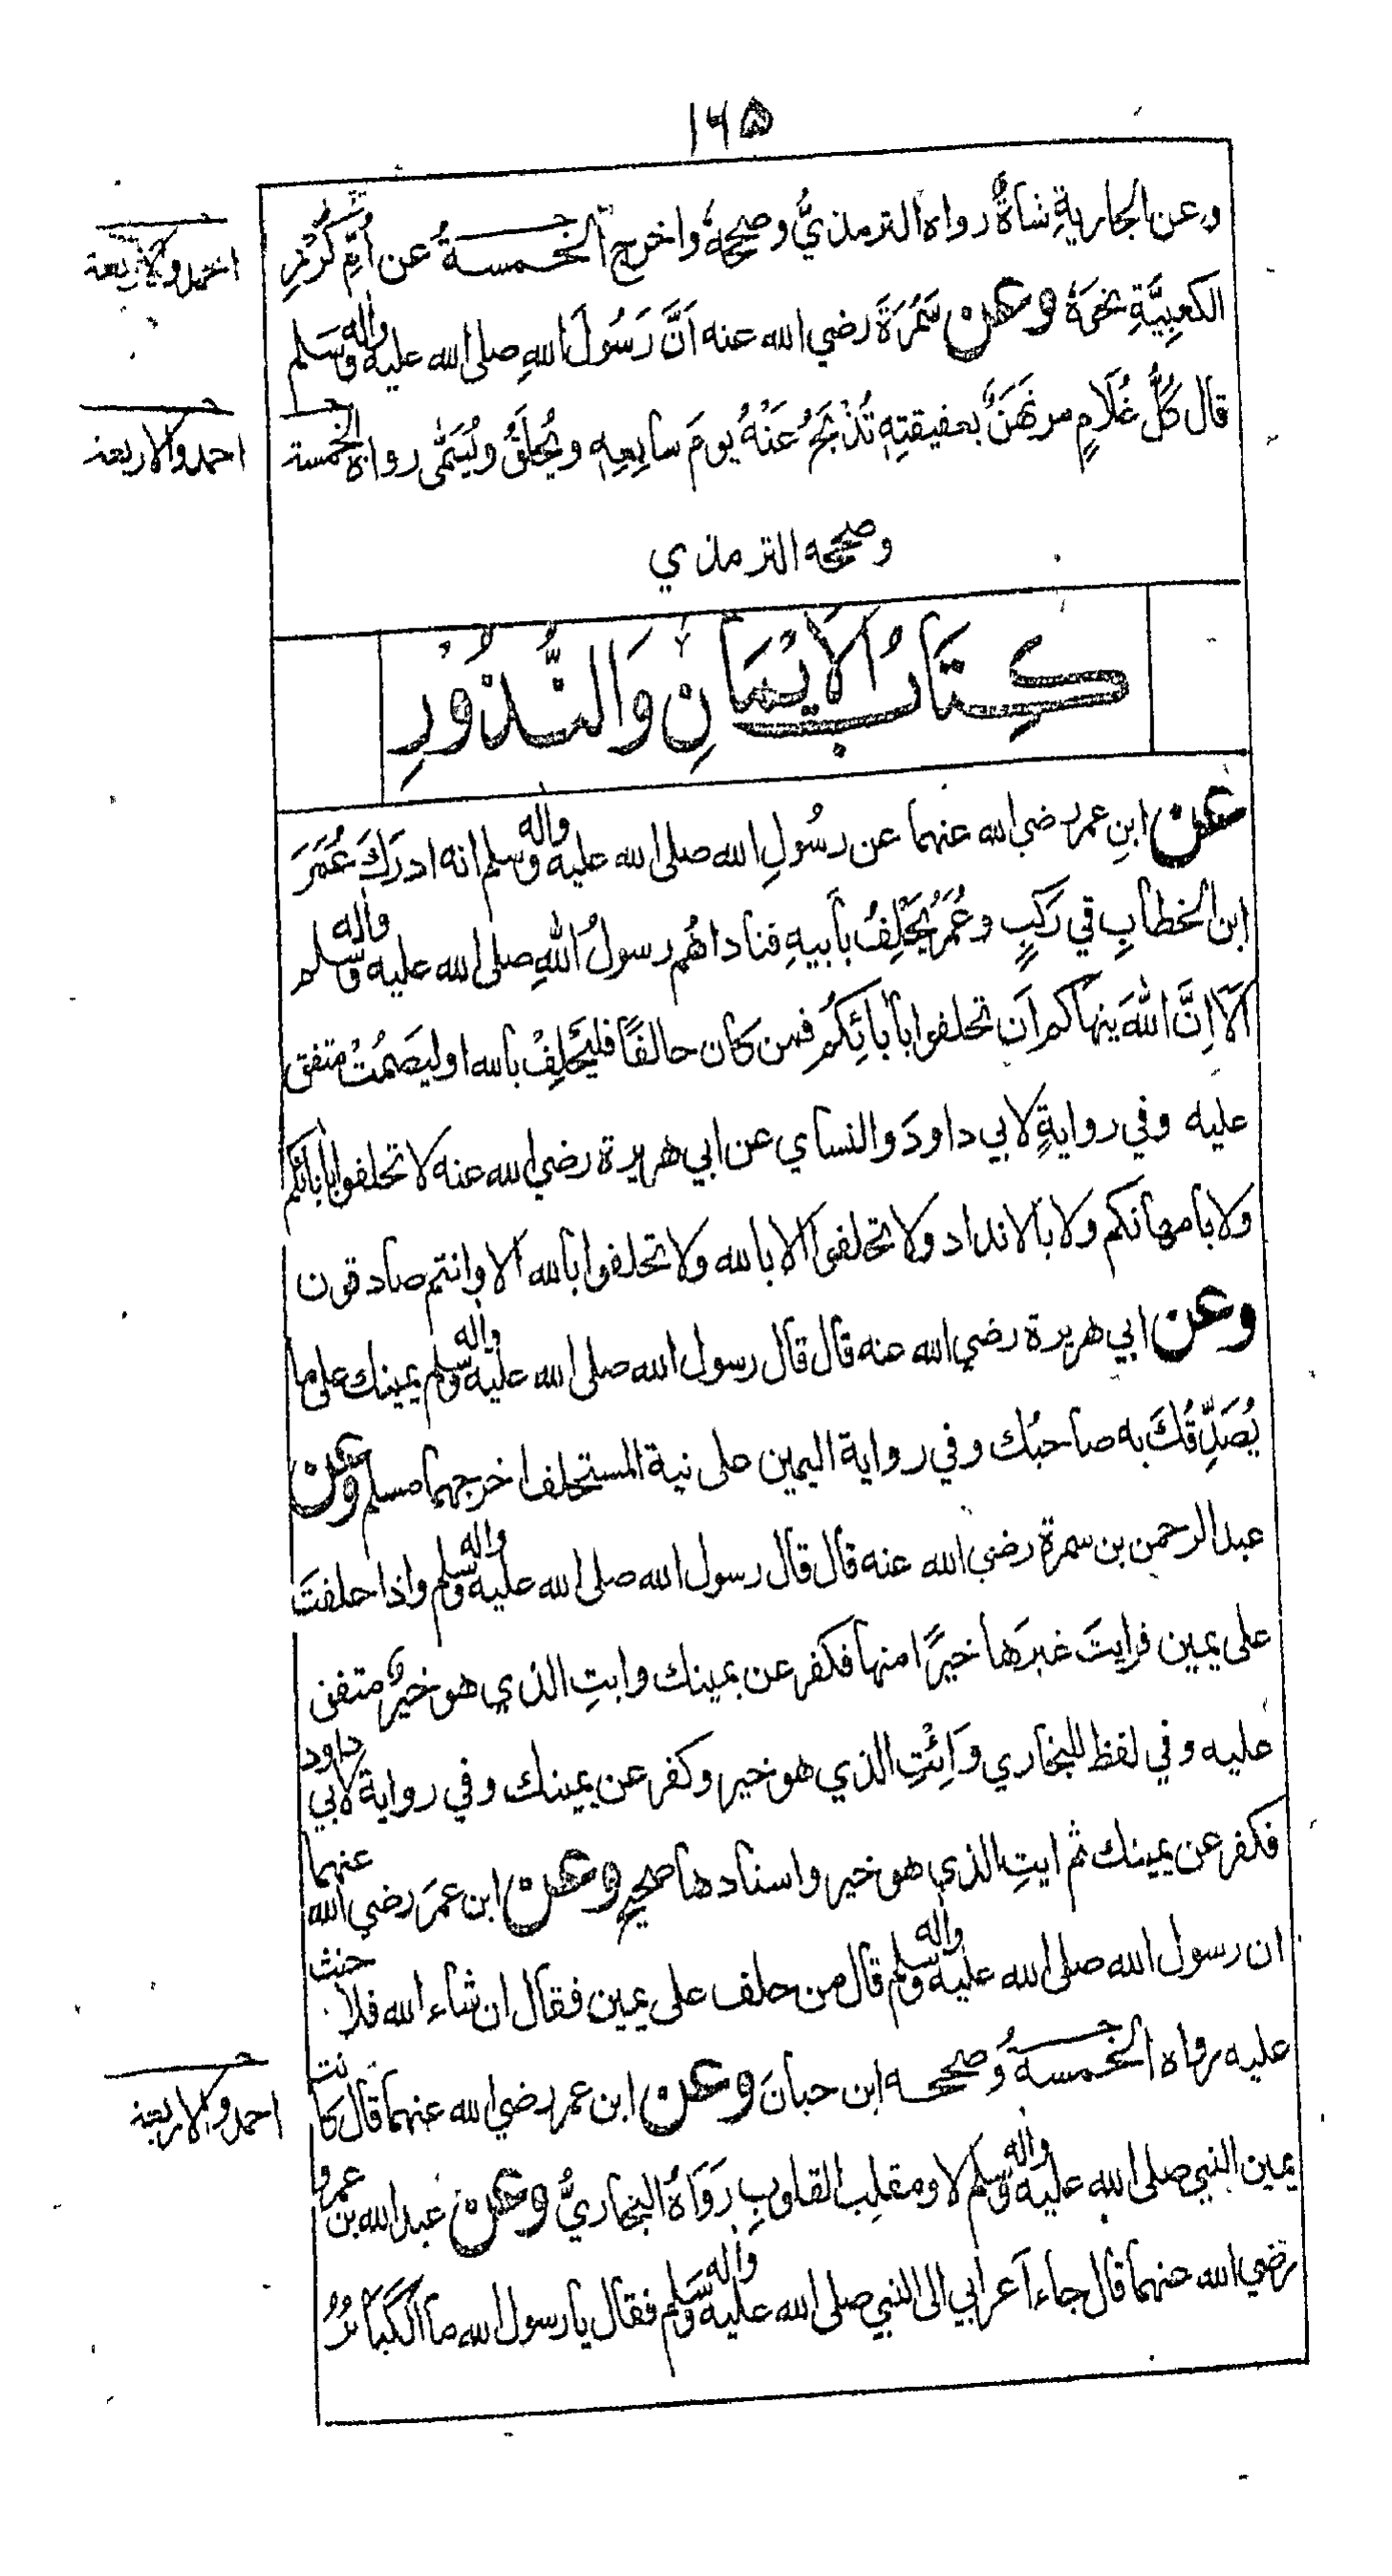 ١٦٥
وعن الجاريةِ شاةٌ رواه الترمذيُّ وصححهُ واخرج الخمسةُ عن اُمِّ كُرْزٍ
احمد والاربعة
الكعبِيَّةِ نحوَهُ وعن سَمُرَةَ رضي الله عنه اَنَّ رَسُولَ اللهِ صلى الله عليه واٰله وسَلم
قال كلُّ غُلَامٍ مرتَهَنٌ بعقيقتِهٖ تُذْبَحُ عَنْهُ يومَ سابِعِهٖ ويُحلَقُ ويُسَمّٰى رواه الخمسة
احمد والاربعة
وصححه الترمذي
كِتَابُ الْاَيْمَانِ وَالنُّذُوْرِ
عن ابنِ عمر رضي الله عنهما عن رسُولِ الله صلى الله عليه واٰله وسلم انه ادرَكَ عُمَرَ
ابن الخطابِ في رَكبٍ وعُمَرُ يَحْلِفُ بأبيهِ فناداهُم رسولُ اللهِ صلى الله عليه واٰله وسلم
اَلَا اِنَّ اللهَ ينهاكم اَن تحلفوا باٰبائِكُم فمن كان حالفًا فليَحْلِفْ بالله او ليَصمُتْ متفق
عليه وفي روايةٍ لابي داودَ والنساي عن ابي هريرة رضي الله عنه لا تحلفوا باٰبائكم
ولا بامهاتكم ولا بالانداد ولا تحلفوا الا بالله ولا تحلفوا بالله الا وانتم صادقون
وعن ابي هريرة رضي الله عنه قال قال رسول الله صلى الله عليه واٰله وسلم يمينك على ما
يُصَدِّقُكَ به صاحبُك وفي رواية اليمين على نية المستحلف اخرجهما مسلم وعن
عبد الرحمن بن سمرة رضي الله عنه قال قال رسول الله صلى الله عليه واٰله وسلم واذا حلفتَ
على يمين فرايتَ غيرَها خيرًا منها فكفر عن يمينك وايتِ الذي هو خيرٌ متفق
عليه وفي لفظ للبخاري وَائْتِ الذي هو خير وكفر عن يمينك وفي رواية لابي داود
فكفر عن يمينك ثم ايتِ الذي هو خير واسنادها صحيح وعن ابن عمَر رضي الله عنهما
ان رسول الله صلى الله عليه واٰله وسلم قال من حلف على يمين فقال ان شاء الله فلا حنث
عليه رواه الخمسةُ وصححه ابن حبانَ وعن ابن عمر رضي الله عنهما قال كانت
احمد والاربعة
يمين النبي صلى الله عليه واٰله وسلم لا ومقلِب القلوبِ رَوَاهُ البخاريُّ وعن عبد الله بن عمرو
رضي الله عنهما قال جاء اَعرابي الى النبي صلى الله عليه واٰله وسلم فقال يا رسول الله ما الكَبَائرُ